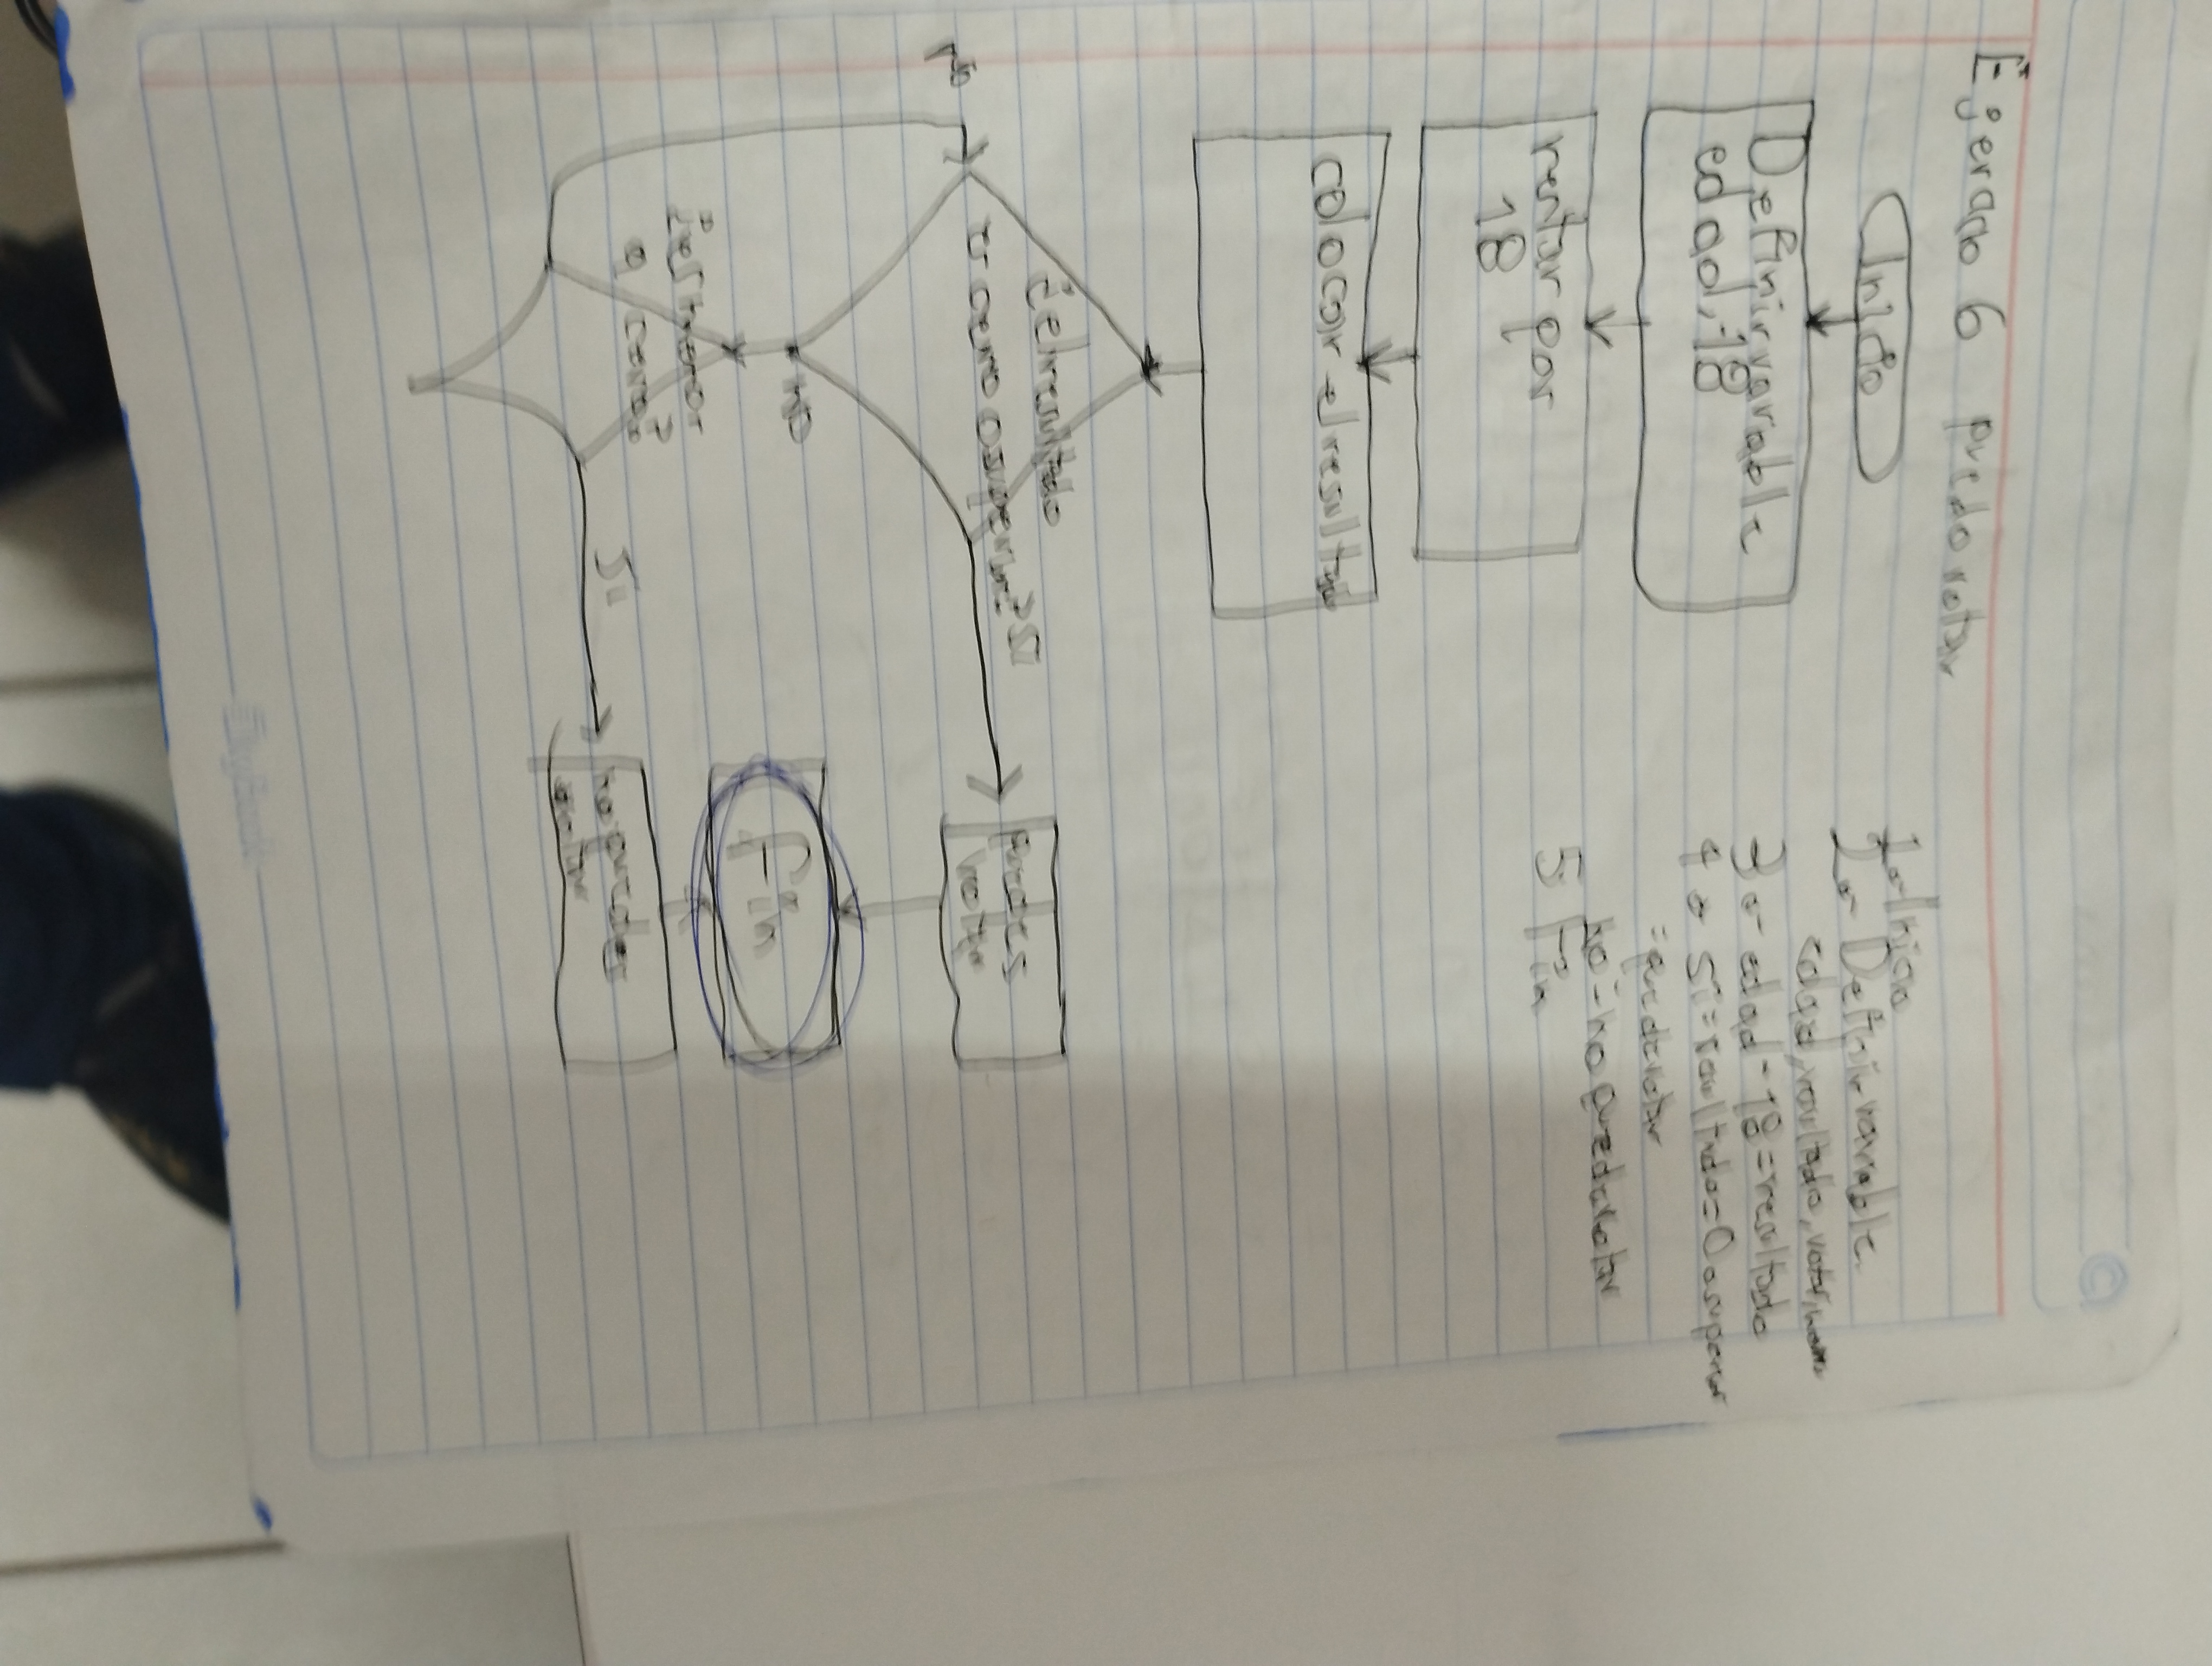 Ejercicio 6 puedo votar
Inicio
Definir variable
edad, 18
restar por
18
colocar el resultado
¿el resultado
es cero o superior? Si
No
NO
¿es menor
a cero?
Si
Puedes
votar
Fin
no puedes
votar
1.- Inicio
2.- Definir variable
edad, resultado, votar,
3.- edad - 18 = resultado
4.- Si = resultado = 0 o superior
= puede votar
no = no puede votar
5 Fin